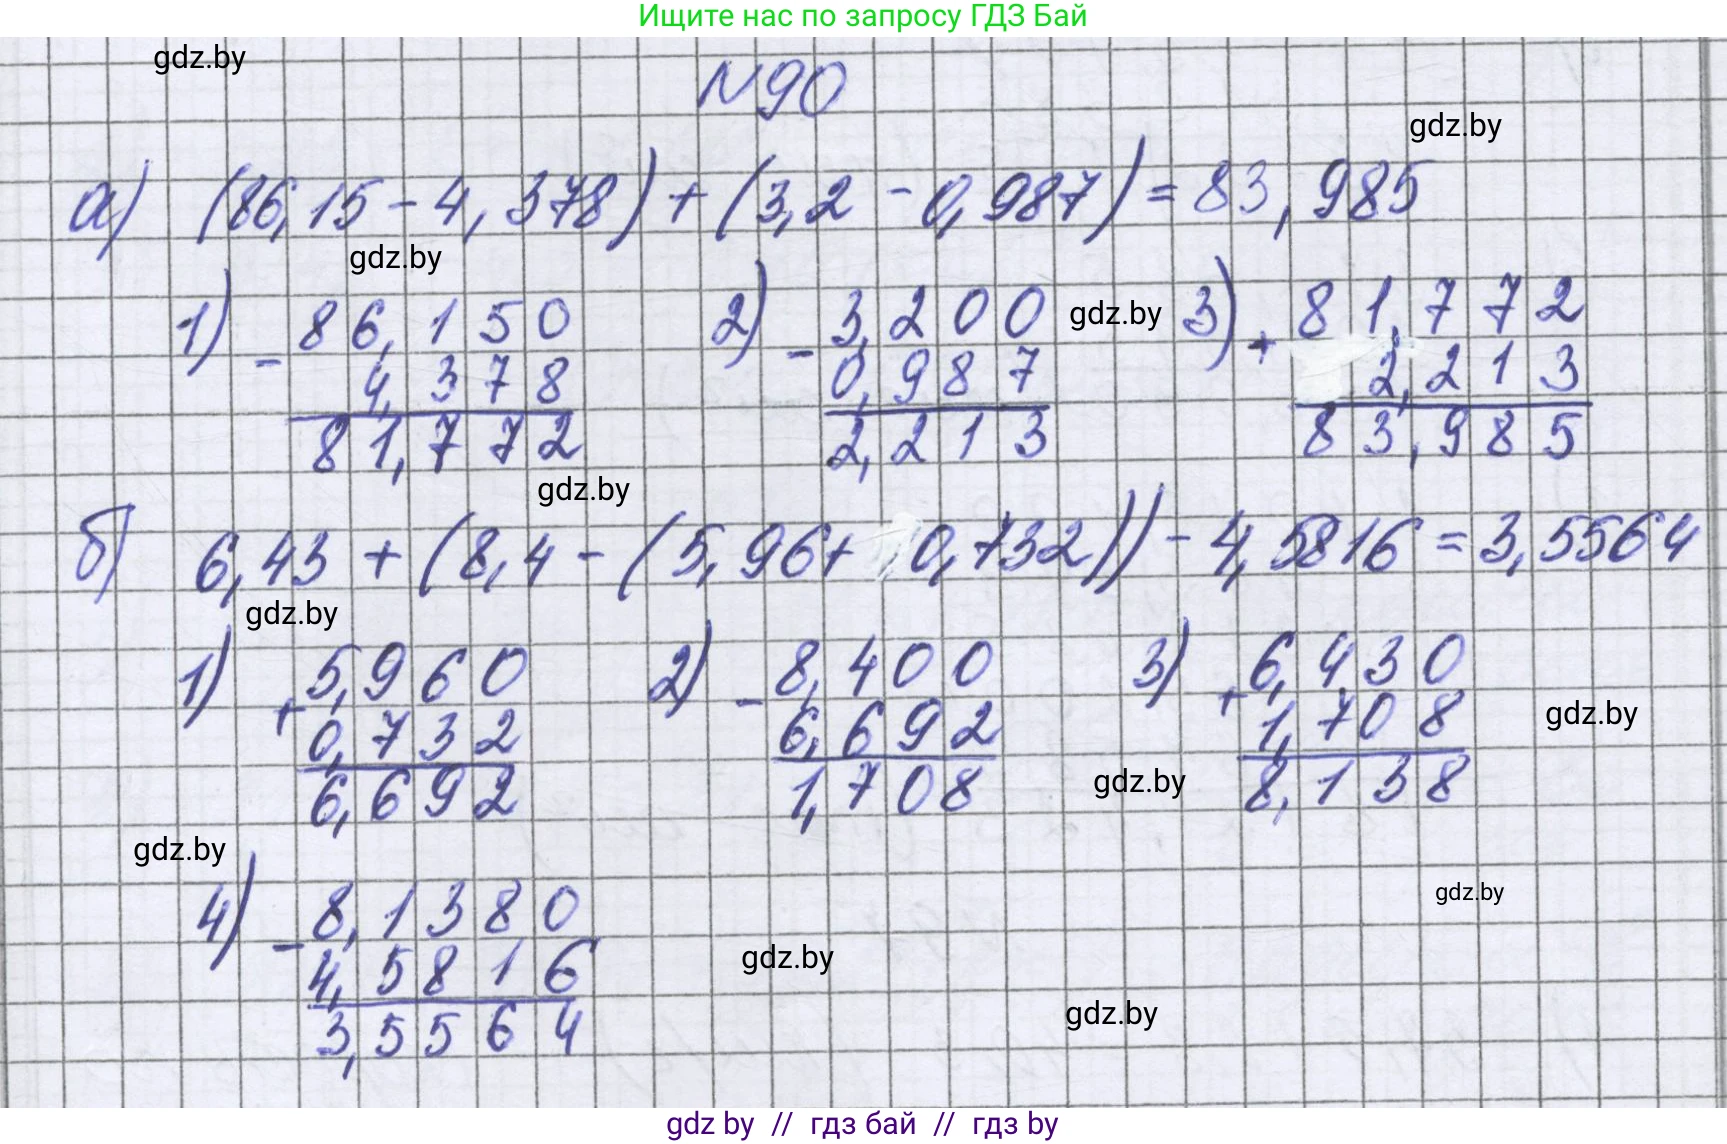 Ищите нас по запросу ГДЗ Бай
gdz.by
N90
gdz.by
а) (86,15 - 4,378) + (3,2 - 0,987) = 83,985
gdz.by
1) - 86,150 2) - 3,200 gdz.by 3) + 81,772
4,378 0,987 2,213
81,772 2,213 83,985
gdz.by
б) 6,43 + (8,4 - (5,96 + 0,732)) - 4,5816 = 3,5564
gdz.by
1) + 5,960 2) - 8,400 3) + 6,430
0,732 6,692 1,708 gdz.by
6,692 1,708 gdz.by 8,138
gdz.by
4) - 8,1380 gdz.by
4,5816 gdz.by
3,5564 gdz.by
gdz by // гдз бай // гдз by